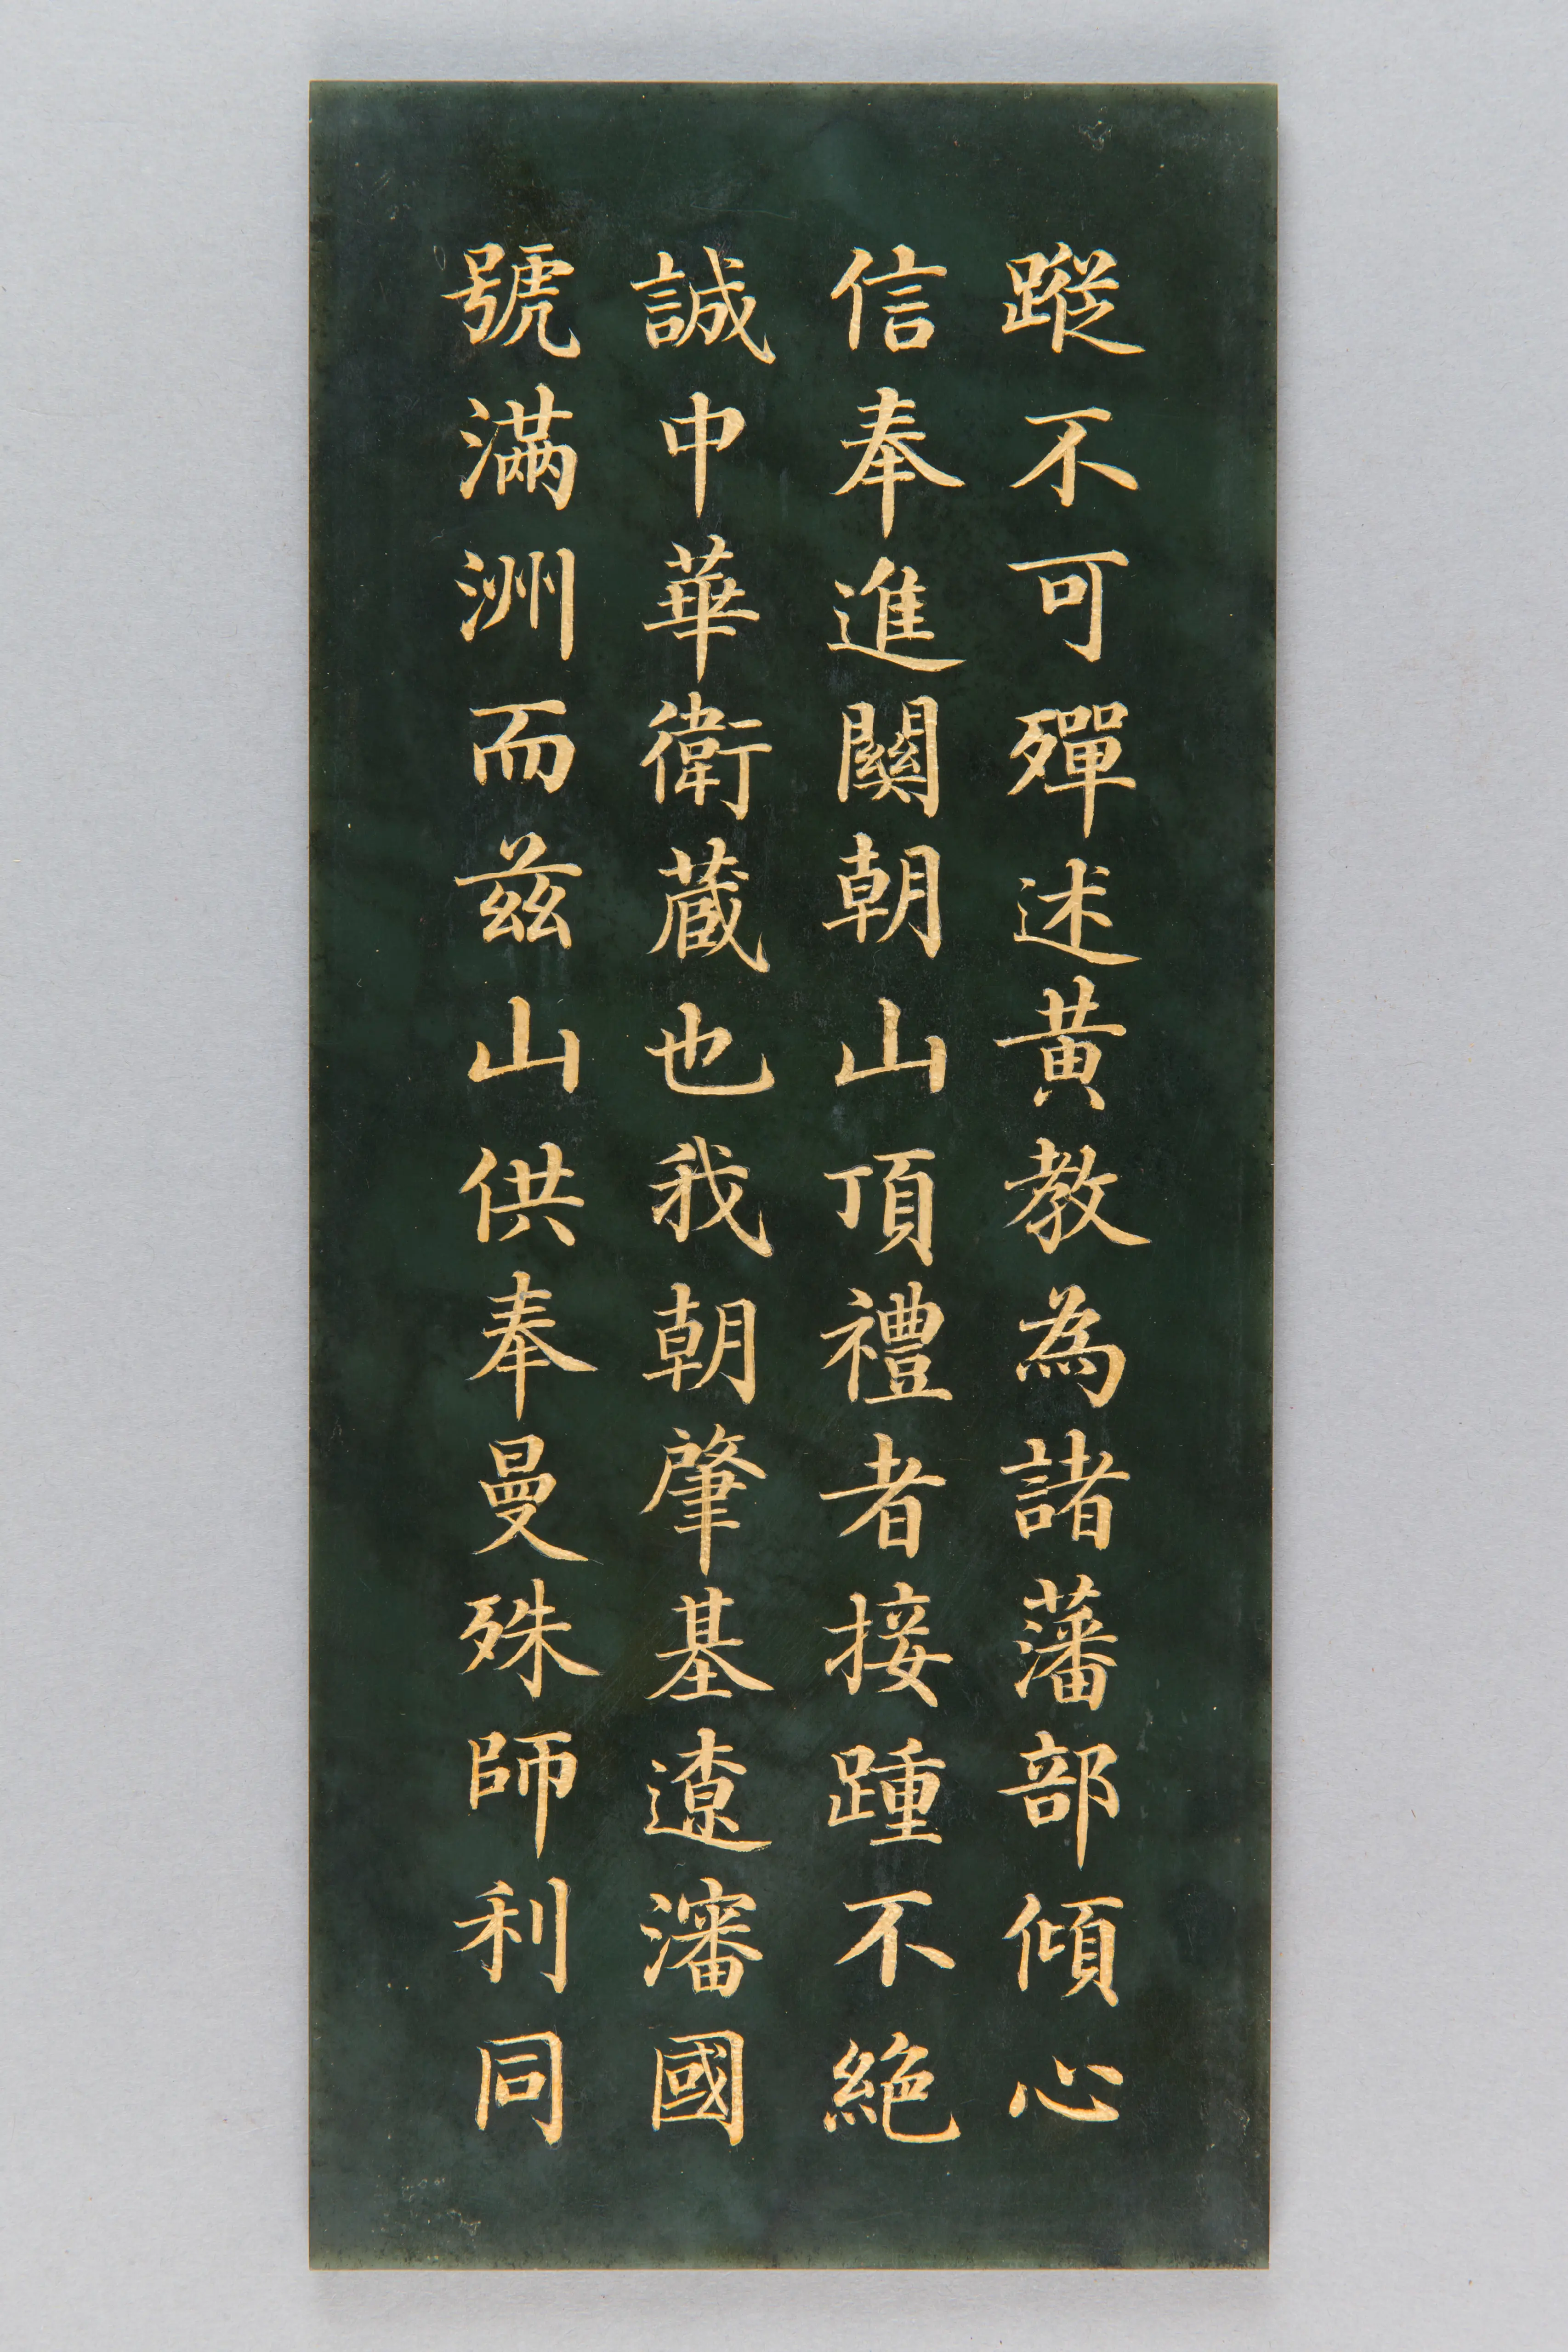 蹤不可殫述黃教為諸藩部傾心
信奉進關朝山頂禮者接踵不絕
誠中華衛蔵也我朝肇基遼瀋國
號滿洲而茲山供奉曼殊師利同